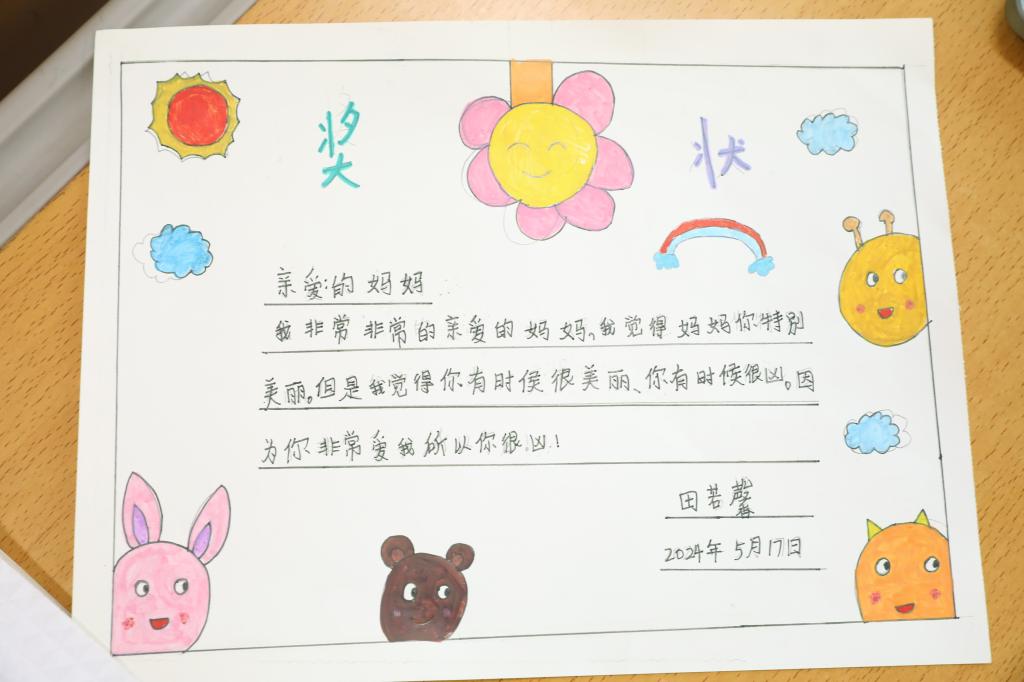 奖状
亲爱的妈妈
我非常非常的亲爱的妈妈,我觉得妈妈你特别
美丽。但是我觉得你有时侯很美丽、你有时候很凶。因
为你非常爱我所以你很凶!
田若馨
2024年5月17日